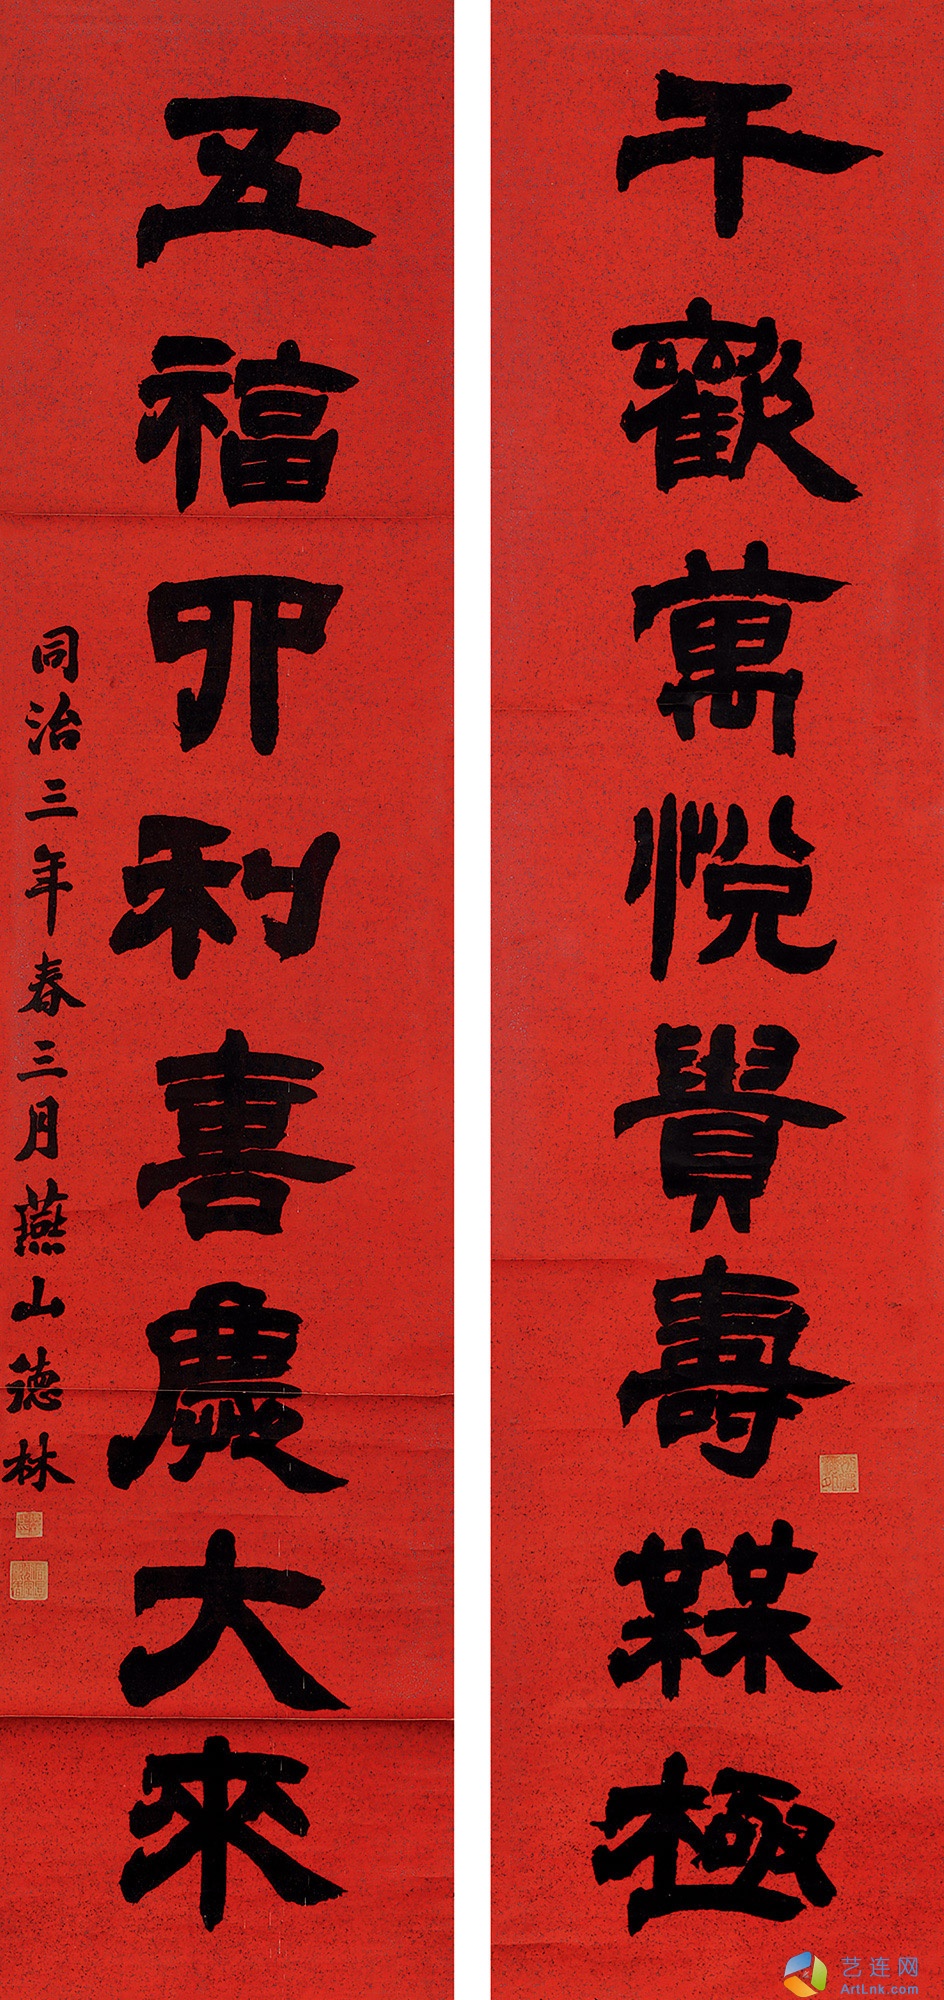 千歡萬悅貴壽無極
五福四利喜慶大來
同治三年春三月燕山德林
艺连网
ArtLnk.com